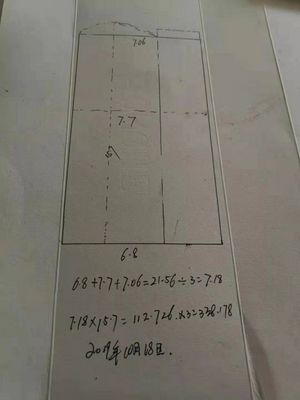 7.06
7.7
6.8
6.8+7.7+7.06=21.56÷3=7.18
7.18×15.7=112.726.×3=338.178
2019年10月18日.